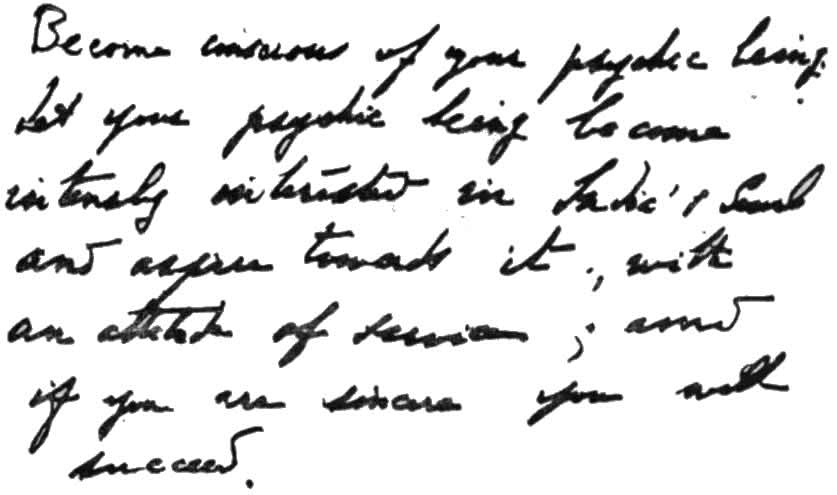 Become conscious of your psychic being.
Let your psychic being become
intensely interested in India's Soul
and aspire towards it, with
an attitude of service; and
if you are sincere you will
succeed.